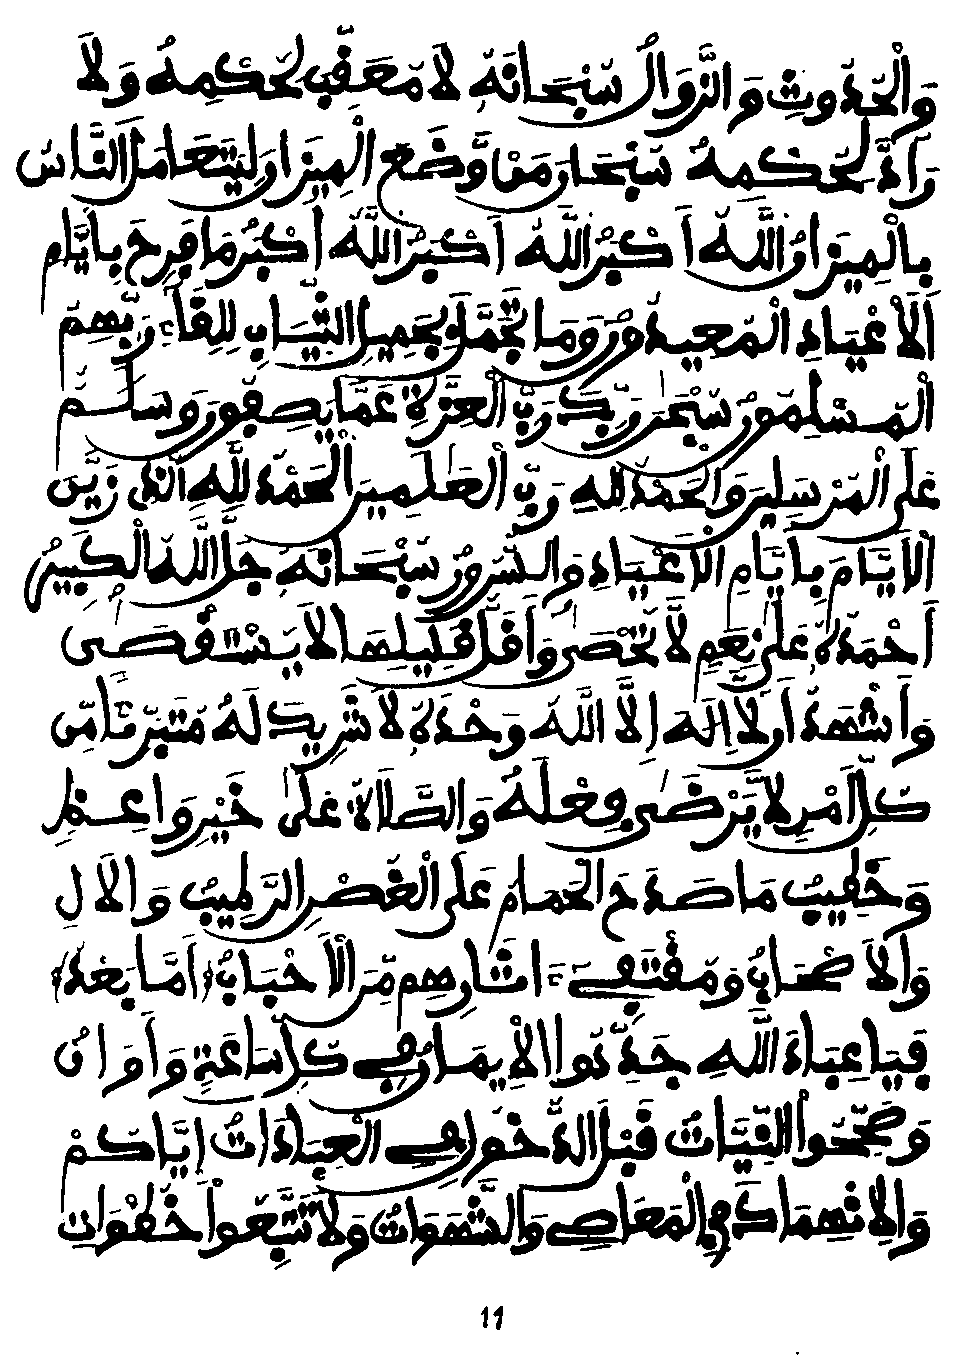 وَالْحُدُوثِ وَالزَّوَالِ سُبْحَانَهُ لَا مُعَقِّبَ لِحُكْمِهِ وَلَا
رَآدَّ لِحُكْمِهِ سُبْحَانَ مَنْ وَّضَعَ الْمِيزَانَ لِيَتَعَامَلَ النَّاسُ
بِالْمِيزَانِ اللَّهُ أَكْبَرُ اللَّهُ أَكْبَرُ اللَّهُ أَكْبَرُ مَا فَرِحَ بِأَيَّامِ
الْأَعْيَادِ الْمُعَيِّدُونَ وَمَا تَجَمَّلَ بِجَمِيلِ الثِّيَابِ لِلِقَاءِ رَبِّهِمُ
الْمُسْلِمُونَ سُبْحَانَ رَبِّكَ رَبِّ الْعِزَّةِ عَمَّا يَصِفُونَ وَسَلَامٌ
عَلَى الْمُرْسَلِينَ وَالْحَمْدُ لِلَّهِ رَبِّ الْعَالَمِينَ الْحَمْدُ لِلَّهِ الَّذِي زَيَّنَ
الْأَيَّامَ بِأَيَّامِ الْأَعْيَادِ وَالسُّرُورِ سُبْحَانَهُ جَلَّ اللَّهُ الْكَبِيرُ
أَحْمَدُهُ عَلَى نِعَمٍ لَا تُحْصَى وَأَقَلُّ قَلِيلِهَا لَا يُسْتَقْصَى
وَأَشْهَدُ أَن لَّا إِلَهَ إِلَّا اللَّهُ وَحْدَهُ لَا شَرِيكَ لَهُ مُتَبَرِّئًا مِّن
كُلِّ أَمْرٍ لَا يَرْضَى فِعْلَهُ وَالصَّلَاةُ عَلَى خَيْرِ وَاعِظٍ
وَخَطِيبٍ مَا صَدَحَ الْحَمَامُ عَلَى الْغُصْنِ الرَّطِيبِ وَالْآلِ
وَالْأَصْحَابِ وَمُقْتَفِي ءَاثَارِهِم مِّنَ الْأَحْبَابِ ﴿أَمَّا بَعْدُ﴾
فَيَا عِبَادَ اللَّهِ جَدِّدُوا الْإِيمَانَ فِي كُلِّ سَاعَةٍ وَأَوَانٍ
وَصَحِّحُوا النِّيَّاتِ قَبْلَ الدُّخُولِ فِي الْعِبَادَاتِ إِيَّاكُمْ
وَالِانْهِمَاكَ فِي الْمَعَاصِي وَالشَّهَوَاتِ وَلَا تَتَّبِعُوا خُطُوَاتِ
11